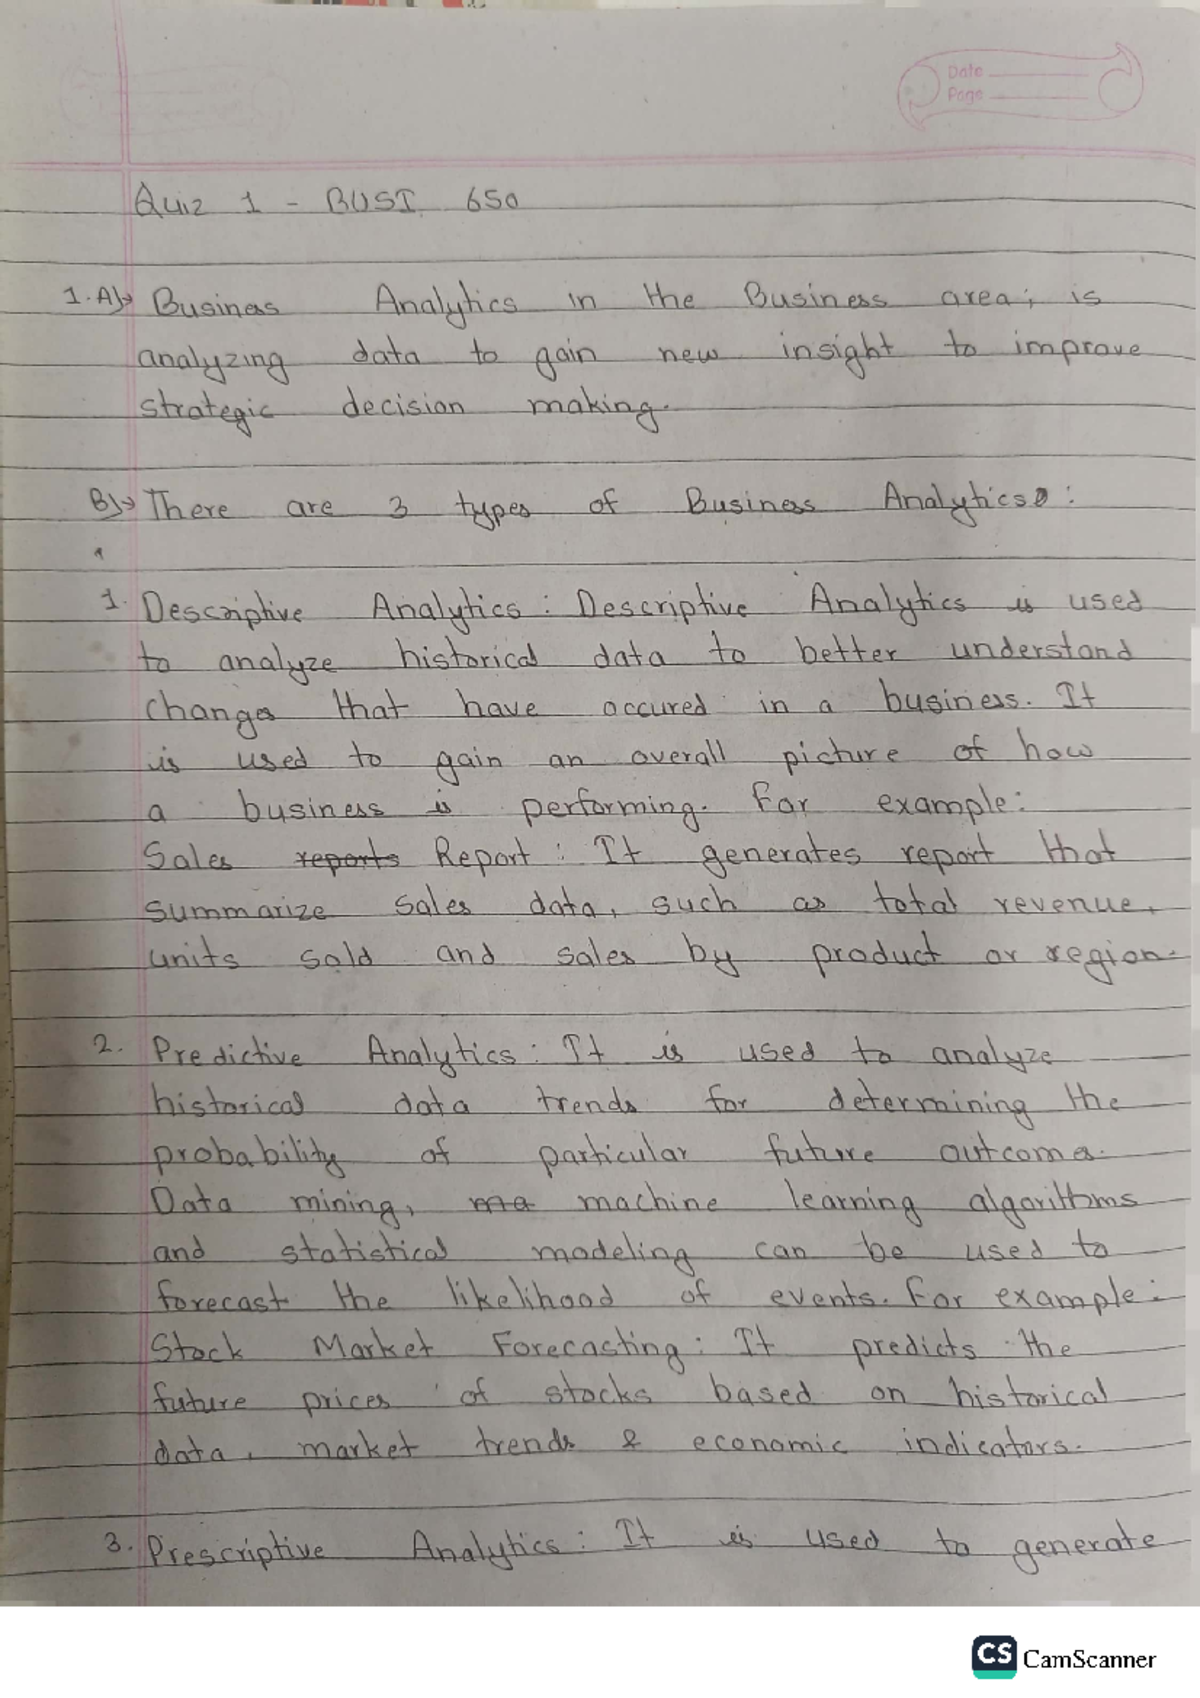 Date
Page
Quiz 1 - BUSI 650
1. A)→ Business Analytics in the Business area; is
analyzing data to gain new insight to improve
strategic decision making.
B)→ There are 3 types of Business Analytics:
1. Descriptive Analytics: Descriptive Analytics is used
to analyze historical data to better understand
changes that have occured in a business. It
is used to gain an overall picture of how
a business is performing. For example:
Sales reports Report: It generates report that
summarize sales data, such as total revenue,
units sold and sales by product or region.
2. Predictive Analytics: It is used to analyze
historical data trends for determining the
probability of particular future outcomes.
Data mining, machine learning algorithms
and statistical modeling can be used to
forecast the likelihood of events. For example:
Stock Market Forecasting: It predicts the
future prices of stocks based on historical
data, market trends & economic indicators.
3. Prescriptive Analytics: It is used to generate
CS CamScanner